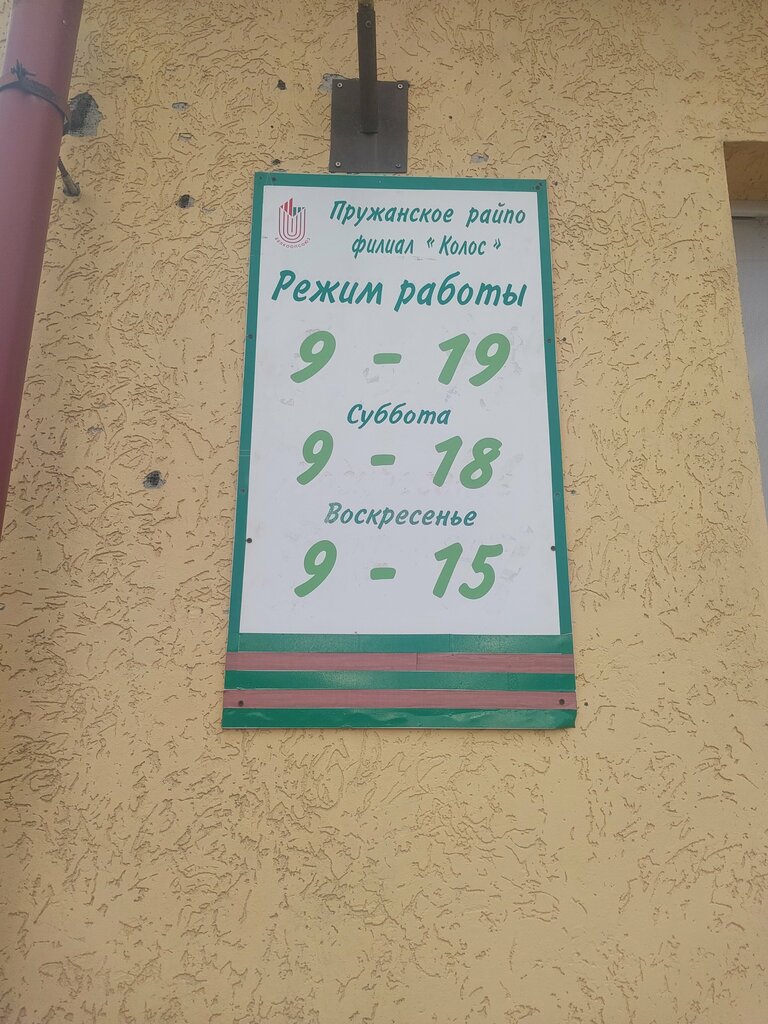 Пружанское райпо
филиал "Колос"
Режим работы
9 - 19
Суббота
9 - 18
Воскресенье
9 - 15